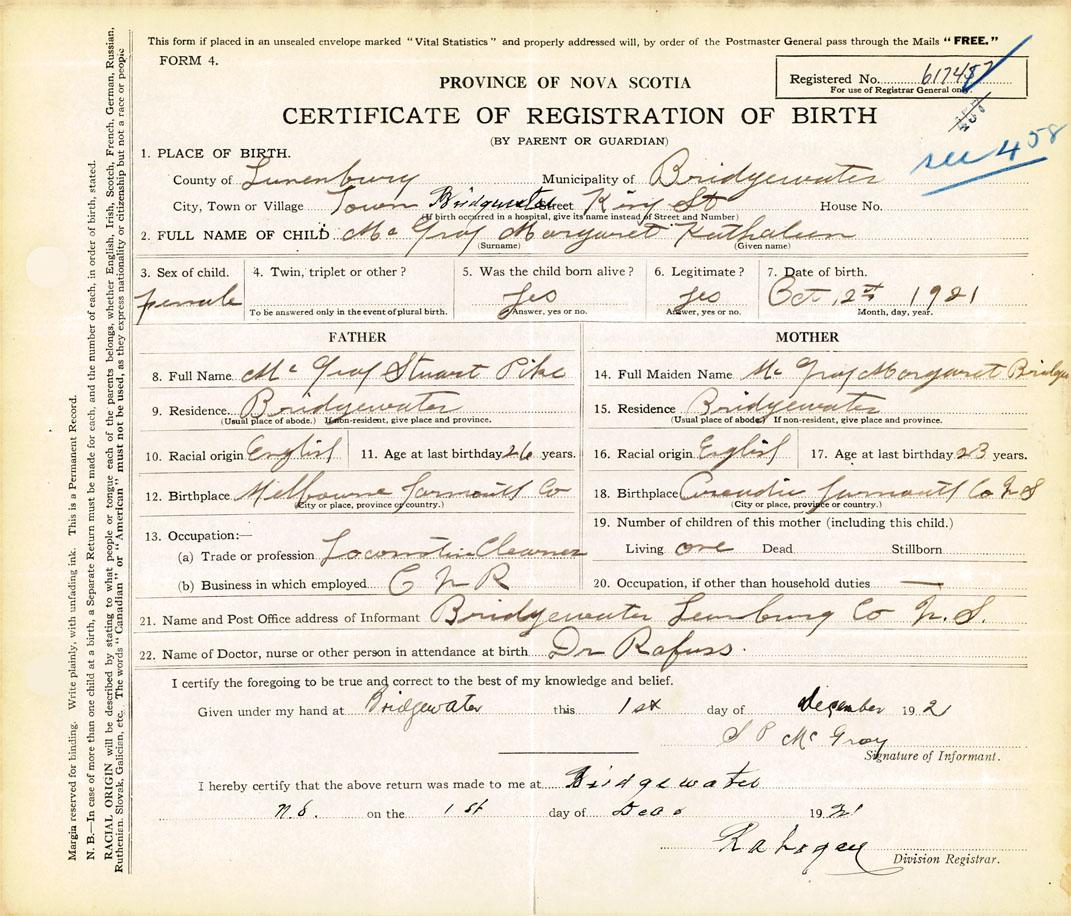 This form if placed in an unsealed envelope marked "Vital Statistics" and properly addressed will, by order of the Postmaster General pass through the Mails "FREE."
FORM 4.
Registered No. 617457
For use of Registrar General only.
PROVINCE OF NOVA SCOTIA
CERTIFICATE OF REGISTRATION OF BIRTH
(BY PARENT OR GUARDIAN)
see 458
1. PLACE OF BIRTH.
County of Lunenburg Municipality of Bridgewater
City, Town or Village Town Bridgewater Street King St House No.
(If birth occurred in a hospital, give its name instead of Street and Number)
2. FULL NAME OF CHILD Mc Gray Margaret Kathaleen
(Surname) (Given name)
3. Sex of child. 4. Twin, triplet or other? 5. Was the child born alive? 6. Legitimate? 7. Date of birth.
female Yes Yes Oct, 2nd 1921
To be answered only in the event of plural birth. Answer, yes or no. Answer, yes or no. Month, day, year.
FATHER MOTHER
8. Full Name Mc Gray Stuart Pike 14. Full Maiden Name Mc Gray Margaret
9. Residence Bridgewater 15. Residence Bridgewater
(Usual place of abode.) If non-resident, give place and province. (Usual place of abode.) If non-resident, give place and province.
10. Racial origin English 11. Age at last birthday 26 years. 16. Racial origin English 17. Age at last birthday 23 years.
12. Birthplace Melbourne Yarmouth Co 18. Birthplace Yarmouth Co N S
(City or place, province or country.) (City or place, province or country.)
13. Occupation:— 19. Number of children of this mother (including this child.)
(a) Trade or profession Locomotive Cleaner Living one Dead Stillborn
(b) Business in which employed C N R 20. Occupation, if other than household duties —
21. Name and Post Office address of Informant Bridgewater Lunburg Co N. S.
22. Name of Doctor, nurse or other person in attendance at birth Dr Rafuss.
I certify the foregoing to be true and correct to the best of my knowledge and belief.
Given under my hand at Bridgewater this 1st day of december 192
S P Mc Gray
Signature of Informant.
I hereby certify that the above return was made to me at Bridgewater
N.S. on the 1st day of 1921
Division Registrar.
Margin reserved for binding. Write plainly, with unfading ink. This is a Permanent Record.
N. B.—In case of more than one child at a birth, a Separate Return must be made for each, and the number of each, in order of birth, stated.
RACIAL ORIGIN will be described by stating to what people or tongue each of the parents belongs, whether English, Irish, Scotch, French, German, Russian,
Ruthenian, Slovak, Galician, etc. The words "Canadian" or "American" must not be used, as they express nationality or citizenship but not a race or people